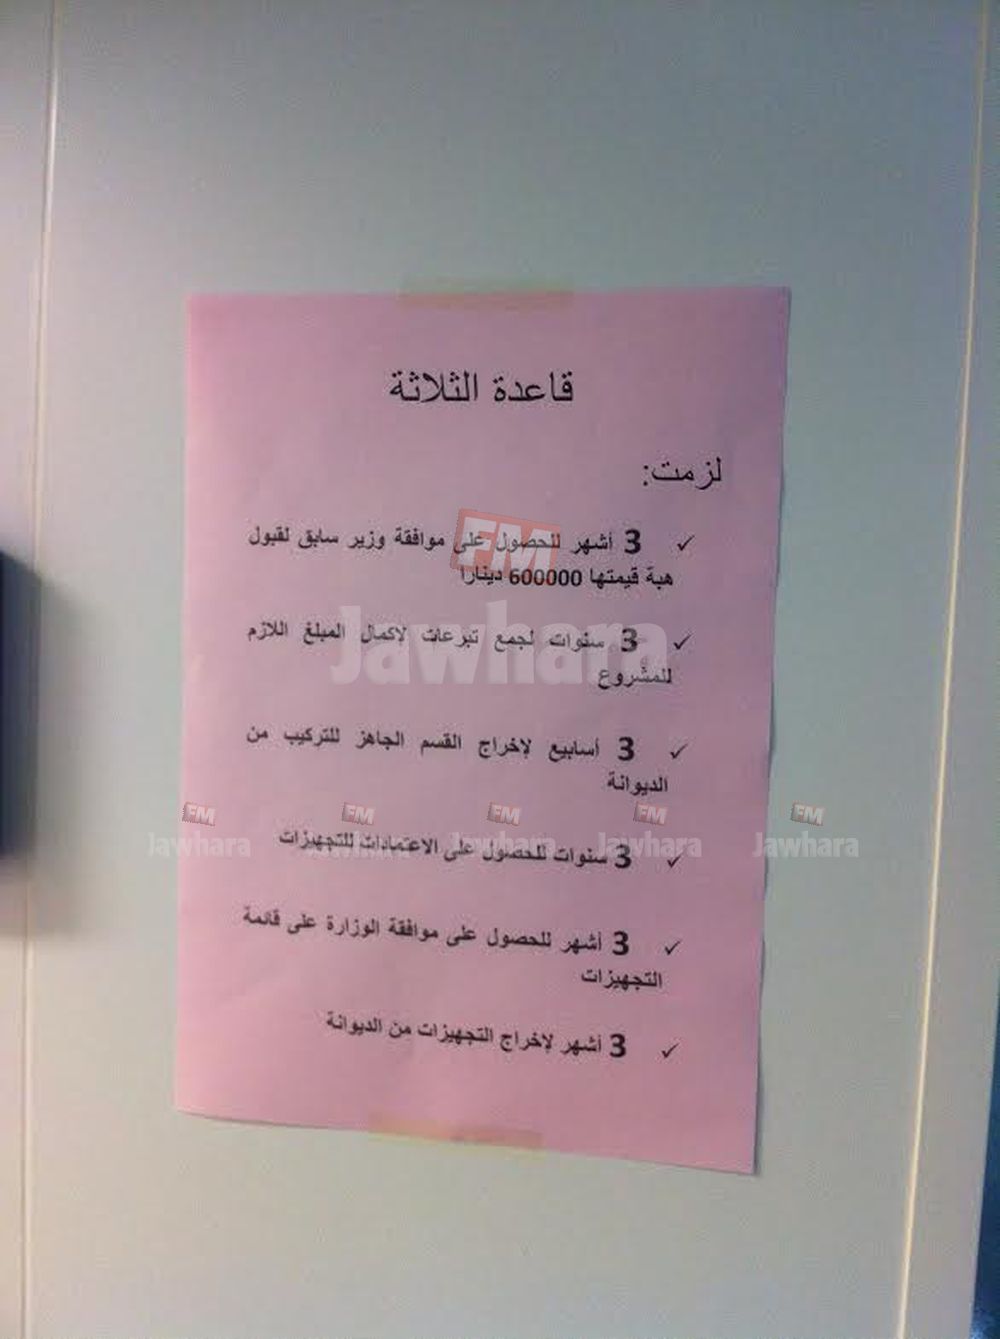 قاعدة الثلاثة
لزمت:
✓ 3 أشهر للحصول على موافقة وزير سابق لقبول
هبة قيمتها 600000 دينارا
✓ 3 سنوات لجمع تبرعات لاكمال المبلغ اللازم
للمشروع
✓ 3 أسابيع لإخراج القسم الجاهز للتركيب من
الديوانة
✓ 3 سنوات للحصول على الاعتمادات للتجهيزات
✓ 3 أشهر للحصول على موافقة الوزارة على قائمة
التجهيزات
✓ 3 أشهر لإخراج التجهيزات من الديوانة
FM
Jawhara
FM FM FM FM FM
Jawhara Jawhara Jawhara Jawhara Jawhara